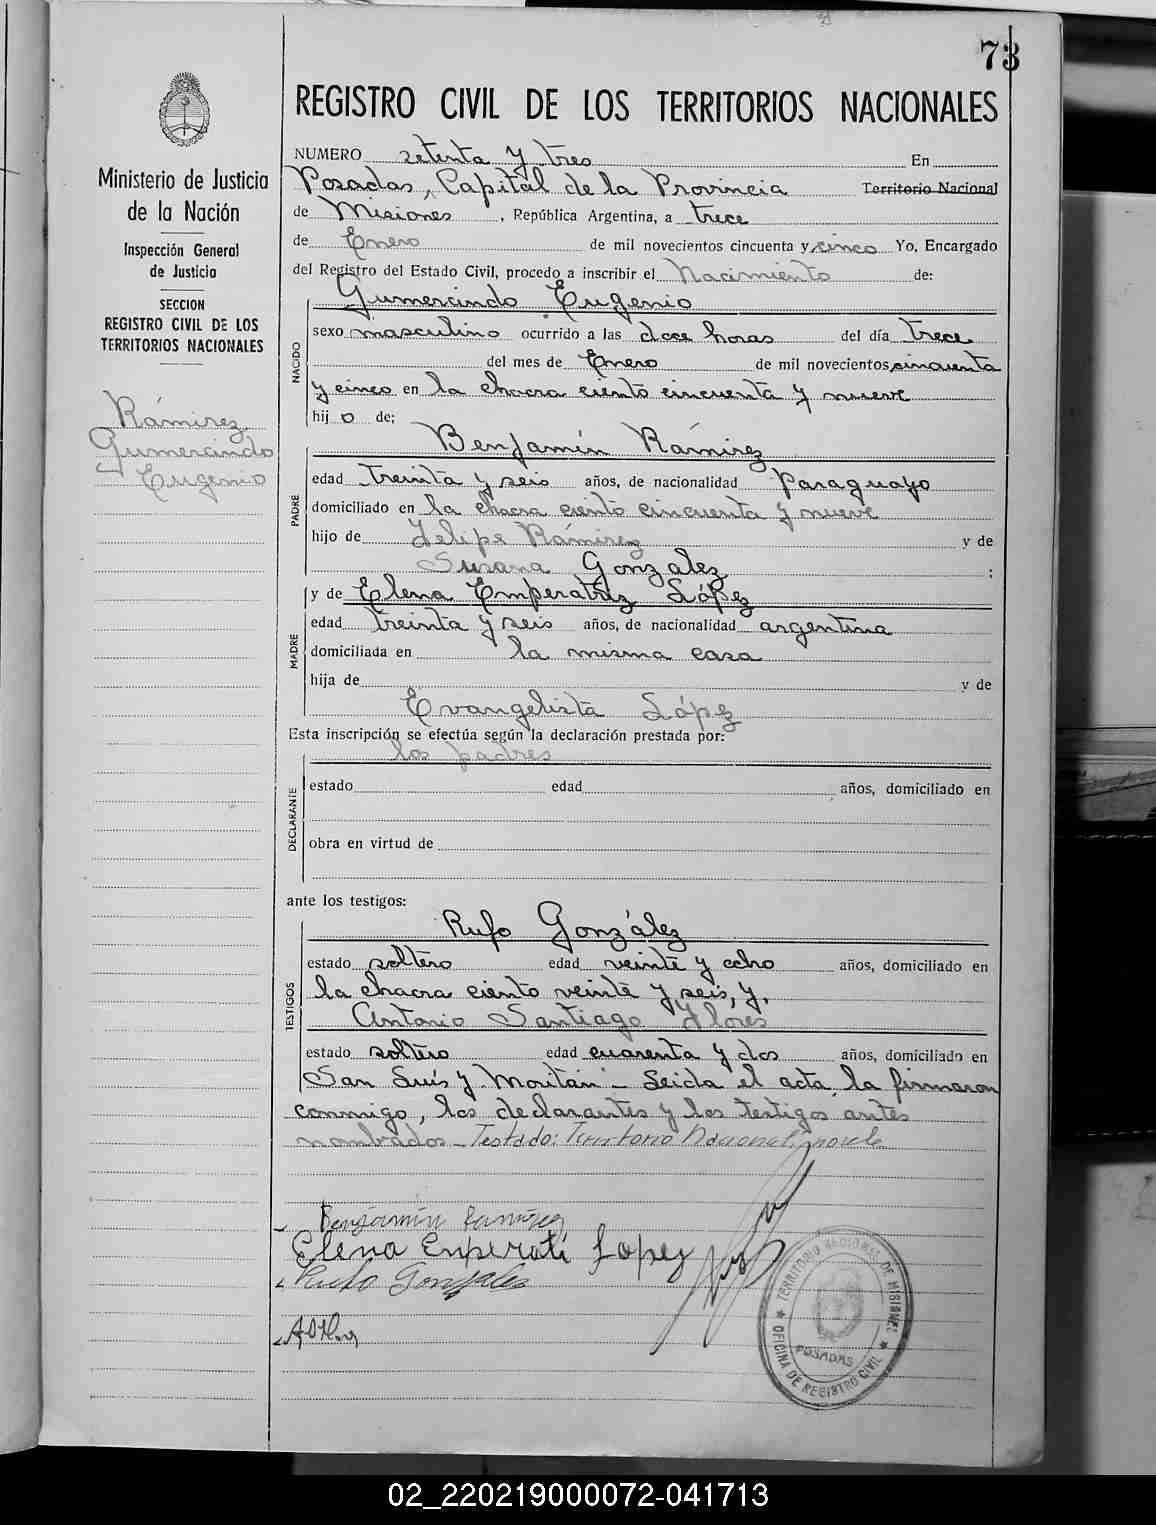 73
REGISTRO CIVIL DE LOS TERRITORIOS NACIONALES
Ministerio de Justicia
de la Nación
Inspección General
de Justicia
SECCION
REGISTRO CIVIL DE LOS
TERRITORIOS NACIONALES
Rámirez
Gumercindo
Eugenio
NUMERO setenta y tres En
Posadas, Capital de la Provincia Territorio Nacional
de Misiones, República Argentina, a trece
de Enero de mil novecientos cincuenta y cinco Yo, Encargado
del Registro del Estado Civil, procedo a inscribir el Nacimiento de:
Gumercindo Eugenio
NACIDO
sexo masculino ocurrido a las doce horas del día trece
del mes de Enero de mil novecientos cincuenta
y cinco en la chacra ciento cincuenta y nueve
hij o de:
Benjamín Rámirez
PADRE
edad treinta y seis años, de nacionalidad paraguayo
domiciliado en la chacra ciento cincuenta y nueve
hijo de Felipe Rámirez y de
Susana Gonzalez ;
y de Elena Emperatriz López
MADRE
edad treinta y seis años, de nacionalidad argentina
domiciliada en la misma casa
hija de y de
Evangelista López
Esta inscripción se efectúa según la declaración prestada por:
los padres
DECLARANTE
estado edad años, domiciliado en
obra en virtud de
ante los testigos:
Rufo González
TESTIGOS
estado soltero edad veinte y ocho años, domiciliado en
la chacra ciento veinte y seis, y,
Antonio Santiago Flores
estado soltero edad cuarenta y dos años, domiciliado en
San Luis y Moritán - Leida el acta, la firmaron
conmigo, los declarantes y los testigos antes
nombrados - Testado: Territorio Nacional:
Benjamín Ramírez
Elena Enperati Lopez
Rufo Gonzales
TERRITORIO NACIONAL DE MISIONES
POSADAS
OFICINA DE REGISTRO CIVIL
02_220219000072-041713